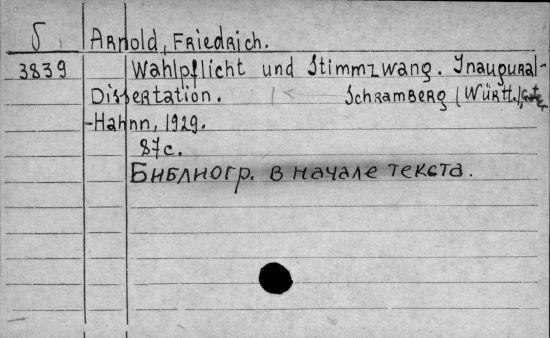 5 Arnold, Friedrich.
3839 Wahlpflicht und Stimmzwang. Inaugural-
Dissertation. Schramberg (Württ.),
-Hahnn, 1929.
87c.
Библиогр. в начале текста.